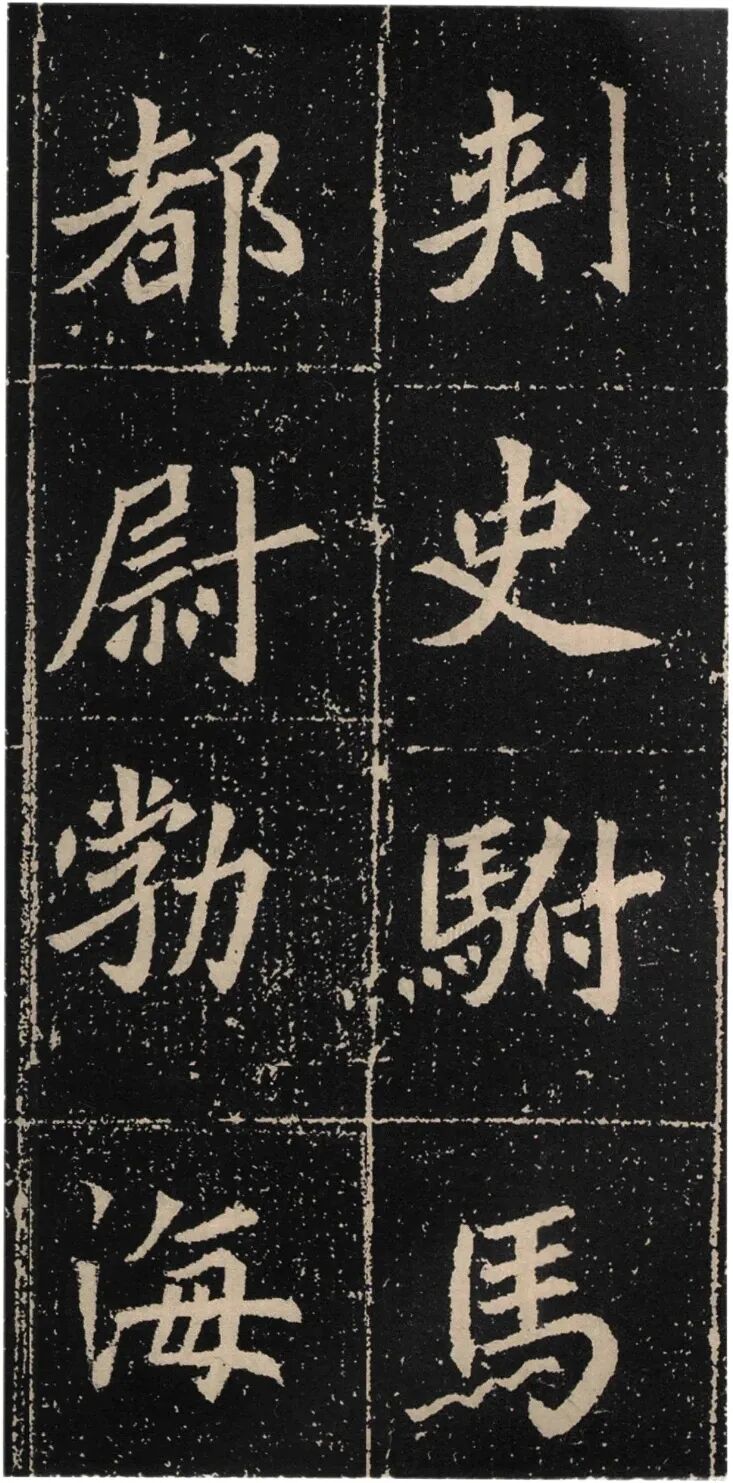 刺史駙馬
都尉勃海